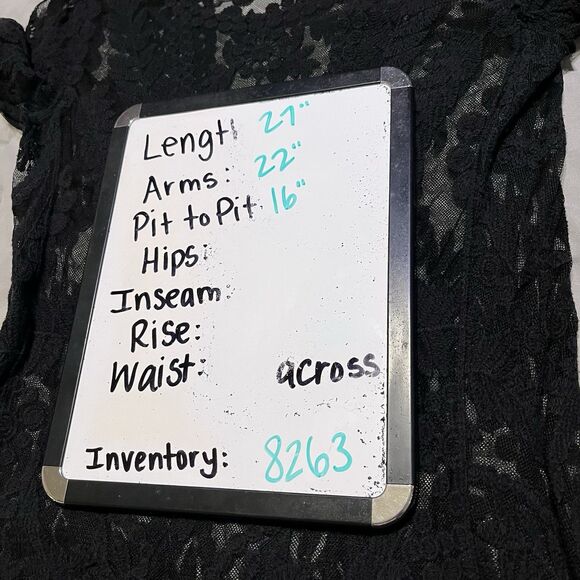 Lengt 27"
Arms: 22"
Pit to Pit 16"
Hips:
Inseam:
Rise:
Waist: across
Inventory: 8263